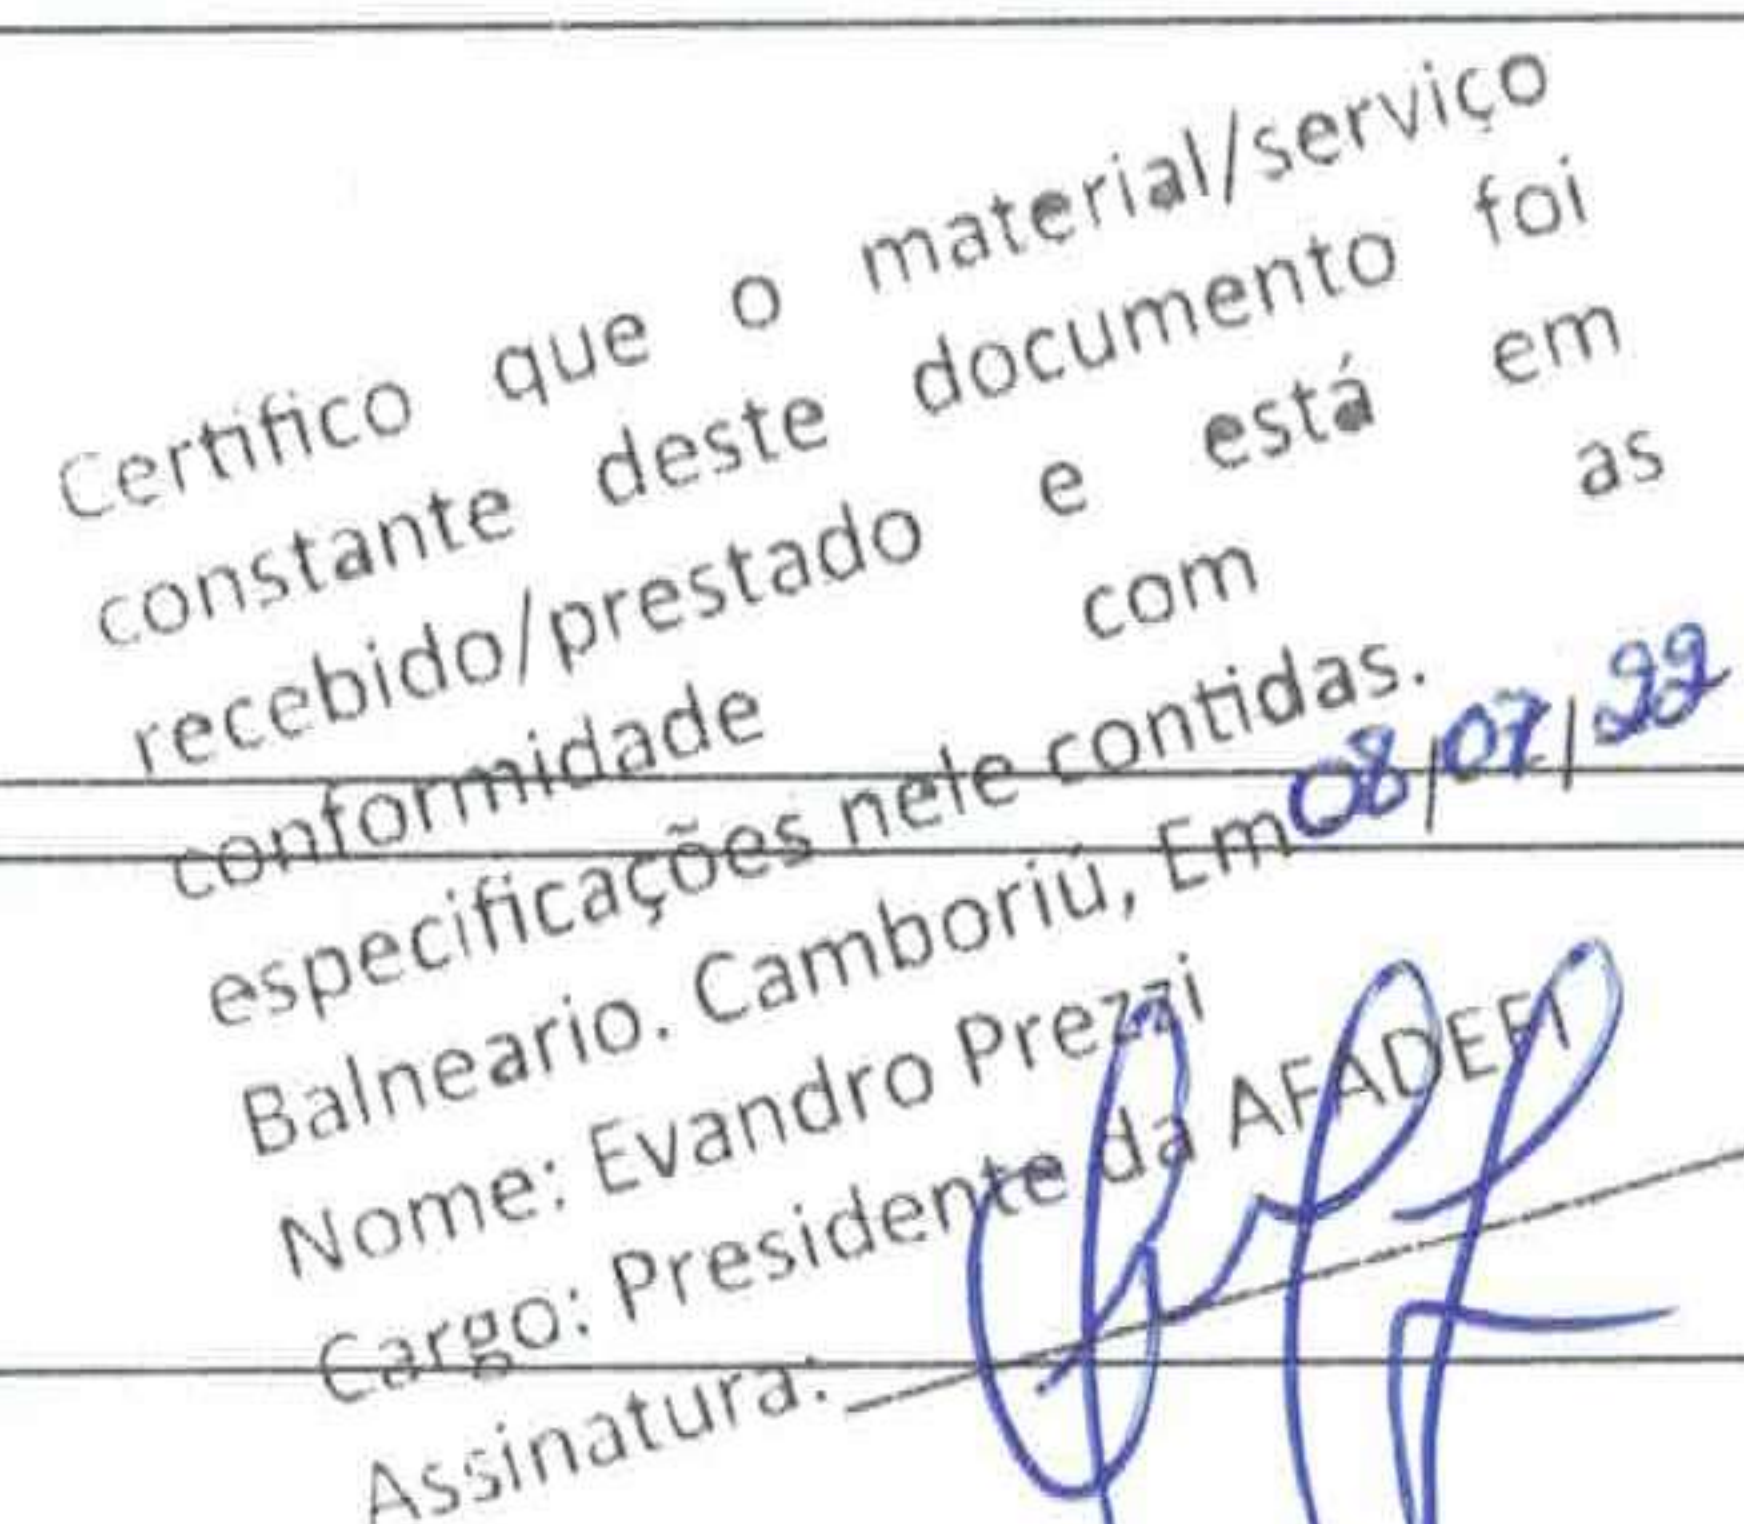 Certifico que o material/serviço
constante deste documento foi
recebido/prestado e está em
conformidade com as
especificações nele contidas.
Balneario. Camboriú, Em 08/07/22
Nome: Evandro Prezzi
Cargo: Presidente da AFADEFI
Assinatura: